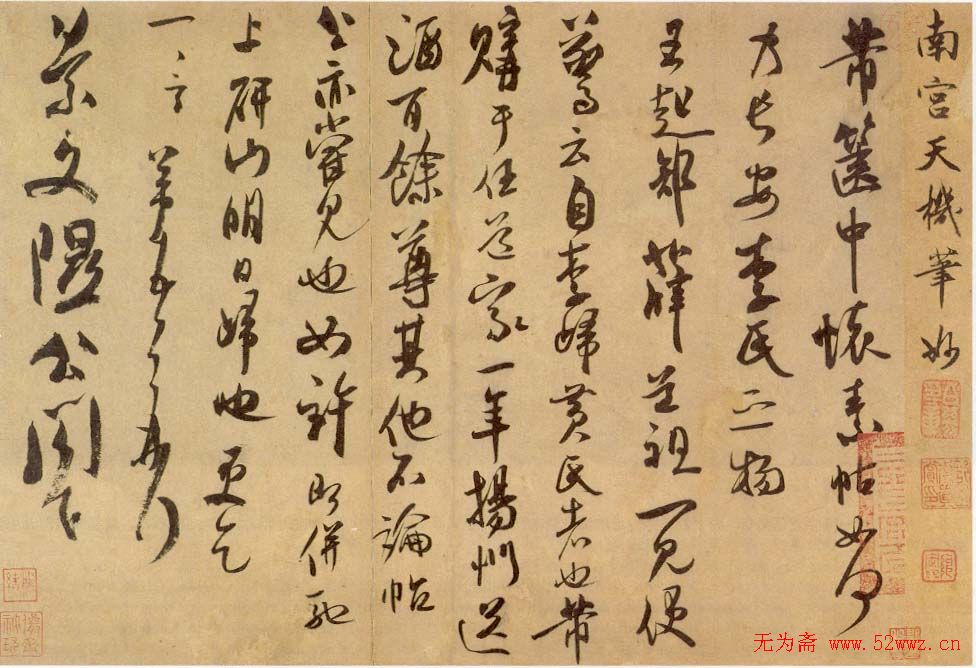 南宮天機筆妙
芾篋中懷素帖如何
乃長安李氏之物
王起部薛道祖一見便
驚云自李歸黃氏者也芾
購于任道家一年揚州送
酒百餘尊其他不論帖
公亦嘗見也如許即併馳
上研山明日歸也更乞
一言芾頓首再拜
景文隰公閣下
无为斋 www.52wwz.cn